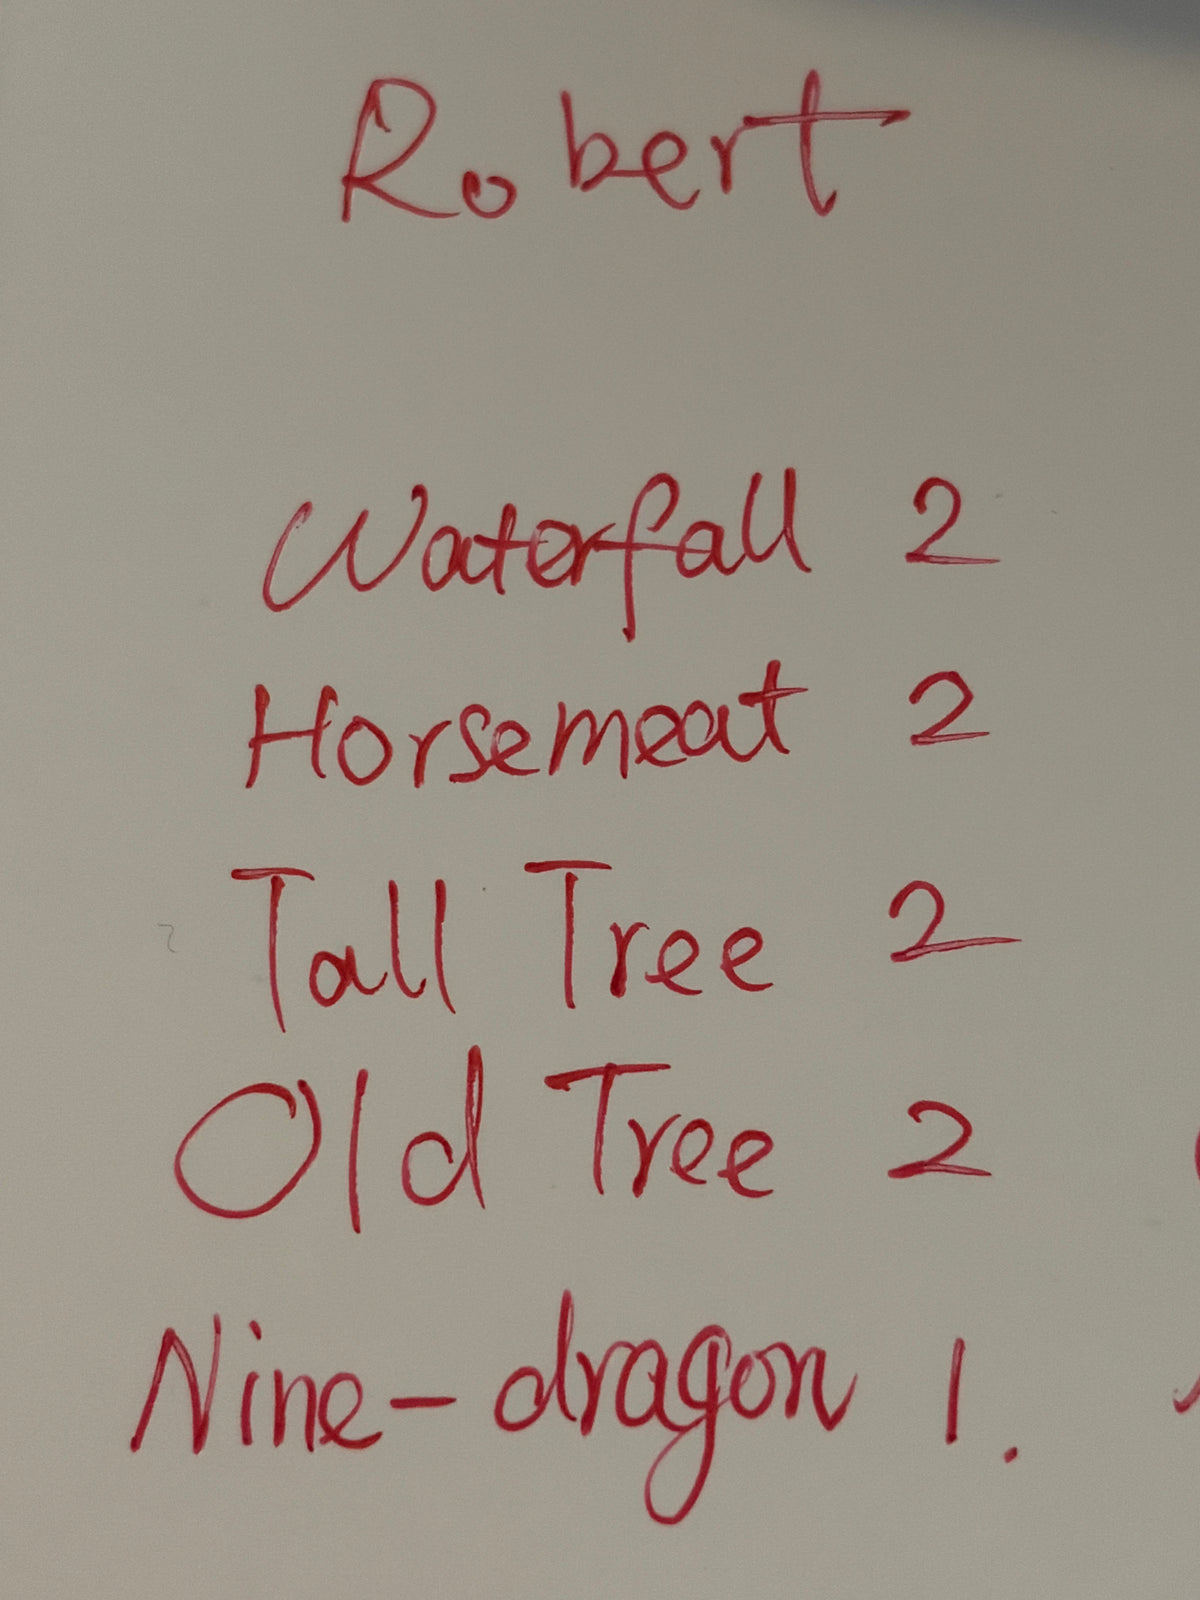 Robert
Waterfall 2
Horsemeat 2
Tall Tree 2
Old Tree 2
Nine-dragon 1.